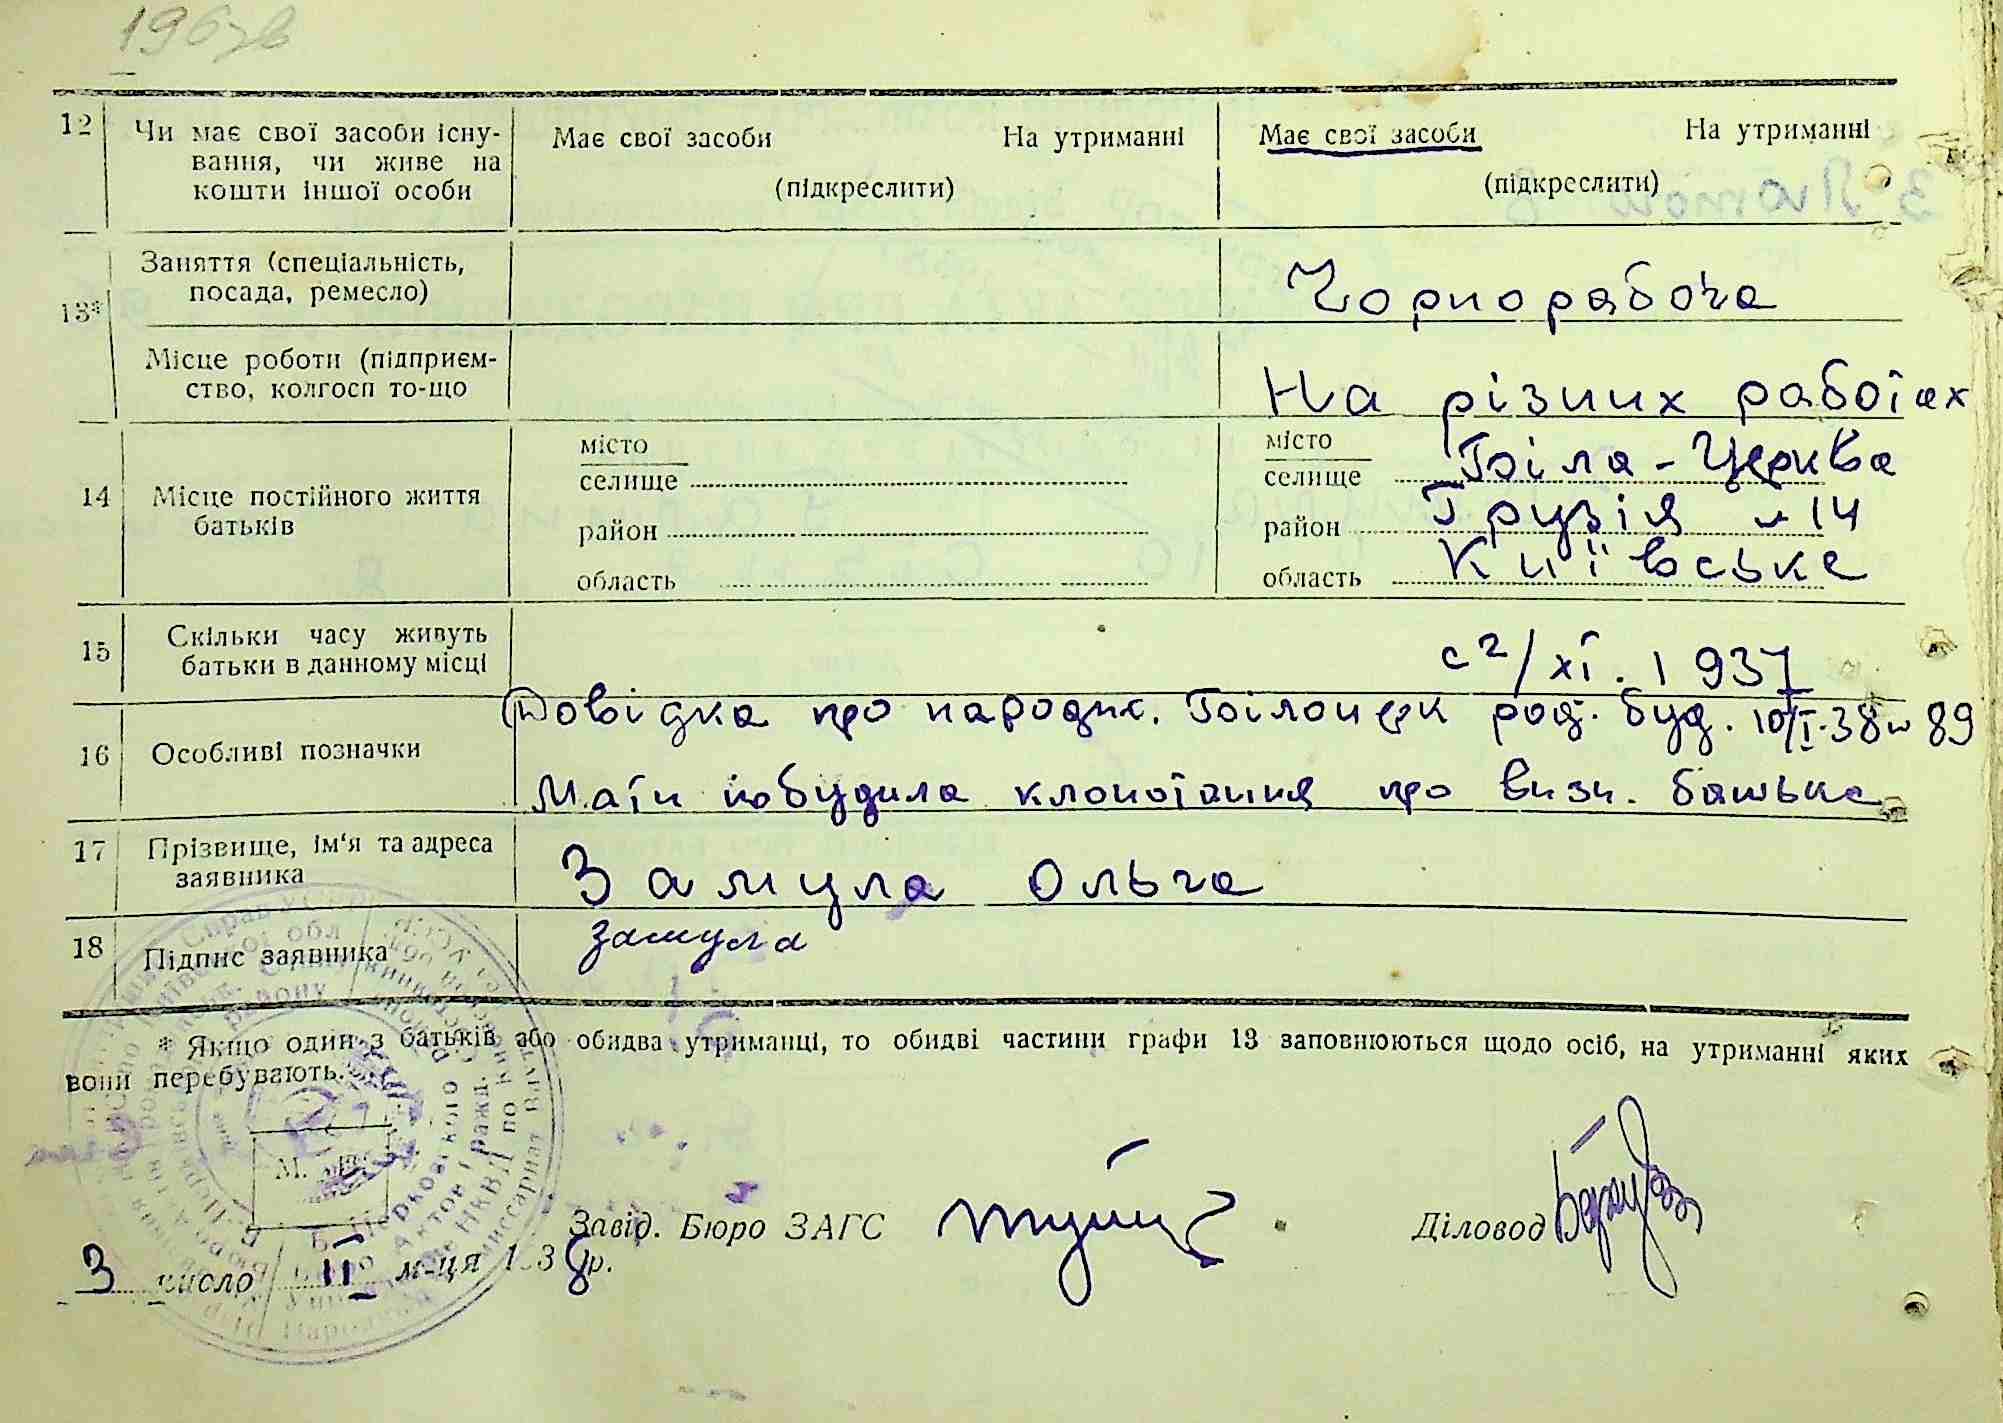 196зв
12 Чи має свої засоби існу- Має свої засоби На утриманні Має свої засоби На утриманні
вання, чи живе на
кошти іншої особи (підкреслити) (підкреслити)
13* Заняття (спеціальність,
посада, ремесло) Чорнорабоча
Місце роботи (підприєм-
ство, колгосп то-що На різних работах
місто місто Біла-Церква
селище селище
14 Місце постійного життя район район Грузія № 14
батьків
область область Київське
15 Скільки часу живуть
батьки в данному місці с 2/XI. 1937
Довідка про народж. Білоцерк род. буд. 10/I.38 № 89
16 Особливі позначки
Мати побудила клопотання про визн. батька
17 Прізвище, ім'я та адреса
заявника Замула Ольга
18 Підпис заявника Замула
* Якщо один з батьків або обидва утриманці, то обидві частини графи 13 заповнюються щодо осіб, на утриманні яких
вони перебувають.
М.
Завід. Бюро ЗАГС Діловод
3 число II м-ця 1938 р.